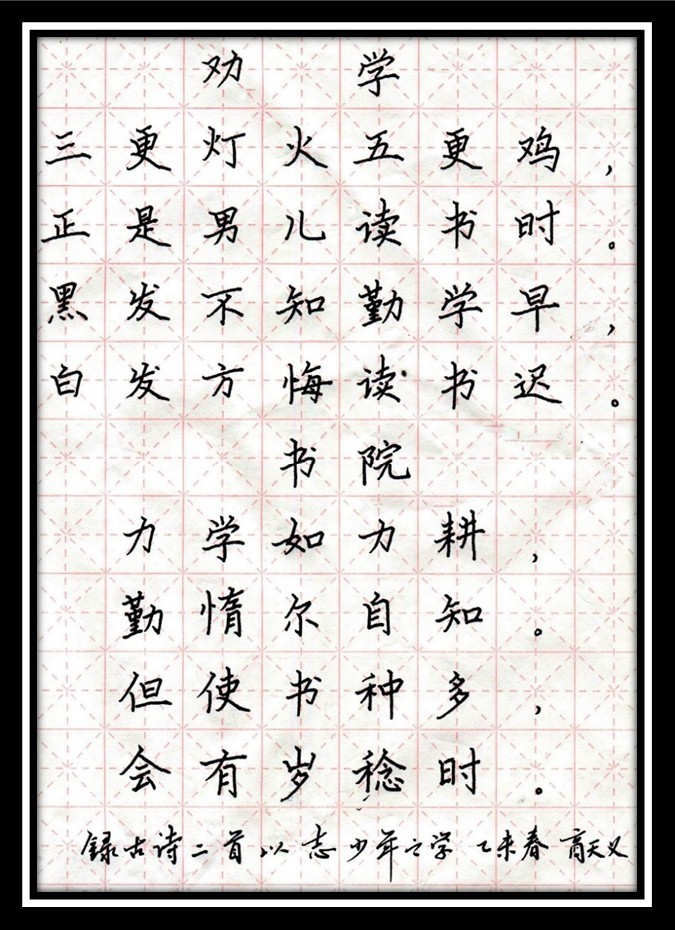 劝学
三更灯火五更鸡，
正是男儿读书时。
黑发不知勤学早，
白发方悔读书迟。
书院
力学如力耕，
勤惰尔自知。
但使书种多，
会有岁稔时。
録古诗二首以志少年之学 乙未春 商天义